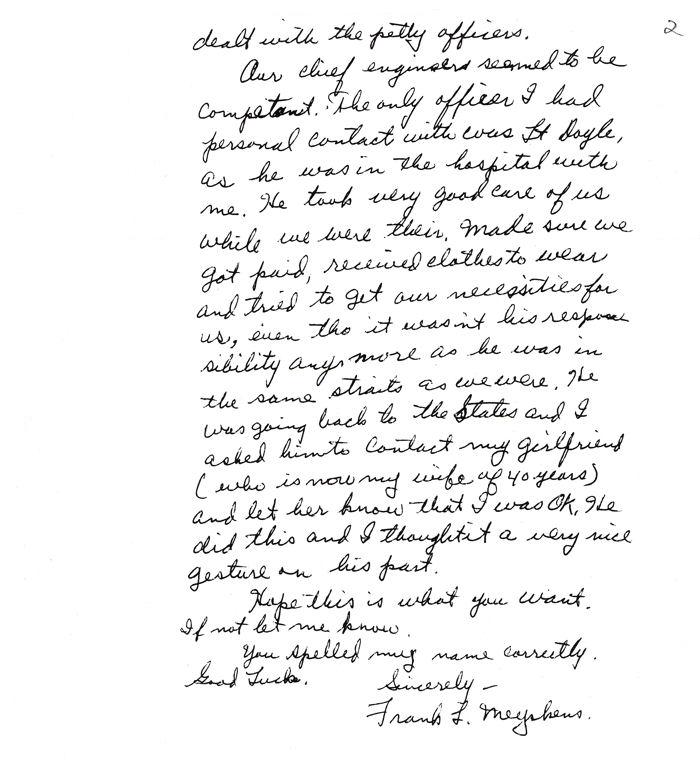 2
dealt with the petty officers.
Our chief engineers seemed to be
competent. The only officer I had
personal contact with was Lt Doyle,
as he was in the hospital with
me. He took very good care of us
while we were their. Made sure we
got paid, received clothes to wear
and tried to get our necessities for
us, even tho it wasn't his respon
sibility any more as he was in
the same straits as we were. He
was going back to the States and I
asked him to contact my girlfriend
(who is now my wife of 40 years)
and let her know that I was OK. He
did this and I thought it a very nice
gesture on his part.
Hope this is what you want.
If not let me know.
You spelled my name correctly.
Good Luck.
Sincerely -
Frank L. Meyskens.